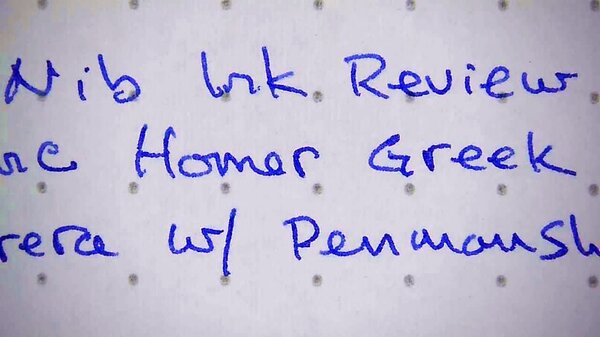 Nib Ink Review
nc Homer Greek
rera w/ Penmansh